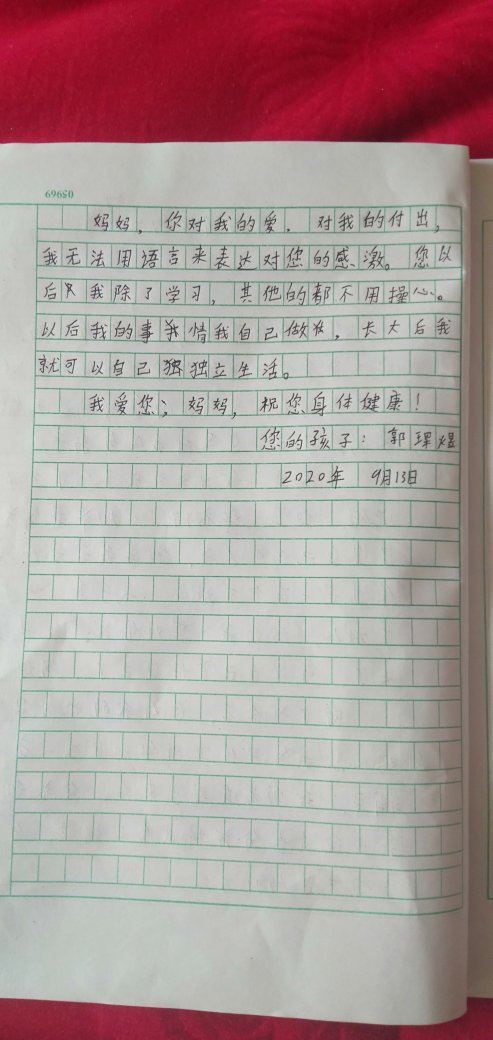 69650
妈妈，你对我的爱，对我的付出，
我无法用语言来表达对您的感激。您以
后只我除了学习，其他的都不用操心。
以后我的事我情我自己做好，长大后我
就可以自己独独立生活。
我爱您；妈妈，祝您身体健康！
您的孩子：郭
2020年 9月13日